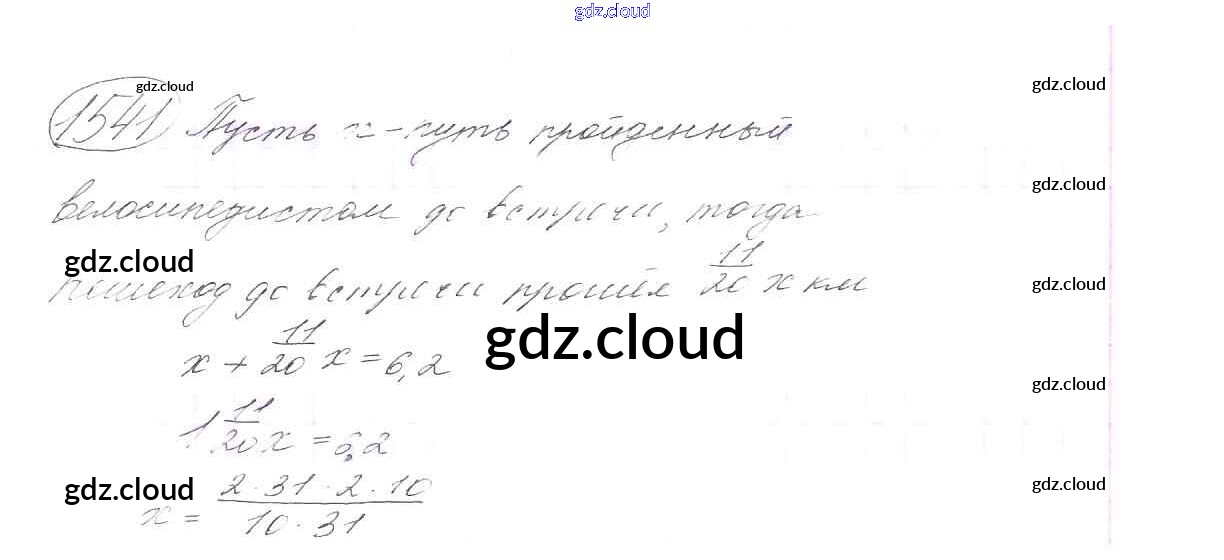 gdz.cloud
1541 Пусть x - путь пройденный
велосипедистом до встречи, тогда
пешеход до встречи прошёл 11/20 x км
x + 11/20 x = 6,2
1 11/20 x = 6,2
x = 2·31·2·10 / 10·31
gdz.cloud
gdz.cloud
gdz.cloud
gdz.cloud
gdz.cloud
gdz.cloud
gdz.cloud
gdz.cloud
gdz.cloud